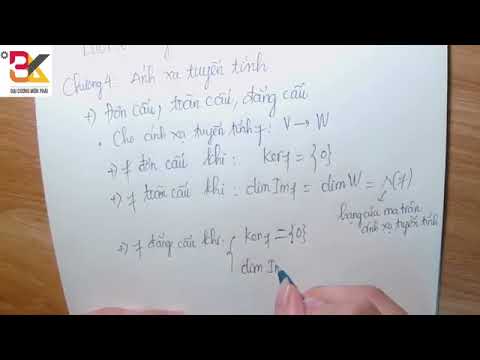 3K
ĐẠI CƯƠNG MÔN PHÁI
Chương 4: Ánh xạ tuyến tính
+) Đơn cấu, toàn cấu, đẳng cấu
• Cho ánh xạ tuyến tính f: V → W
+) f đơn cấu khi: Ker f = {0}
+) f toàn cấu khi: dim Im f = dim W = r(f)
hạng của ma trận
ánh xạ tuyến tính
+) f đẳng cấu khi: { Ker f = {0}
dim Im